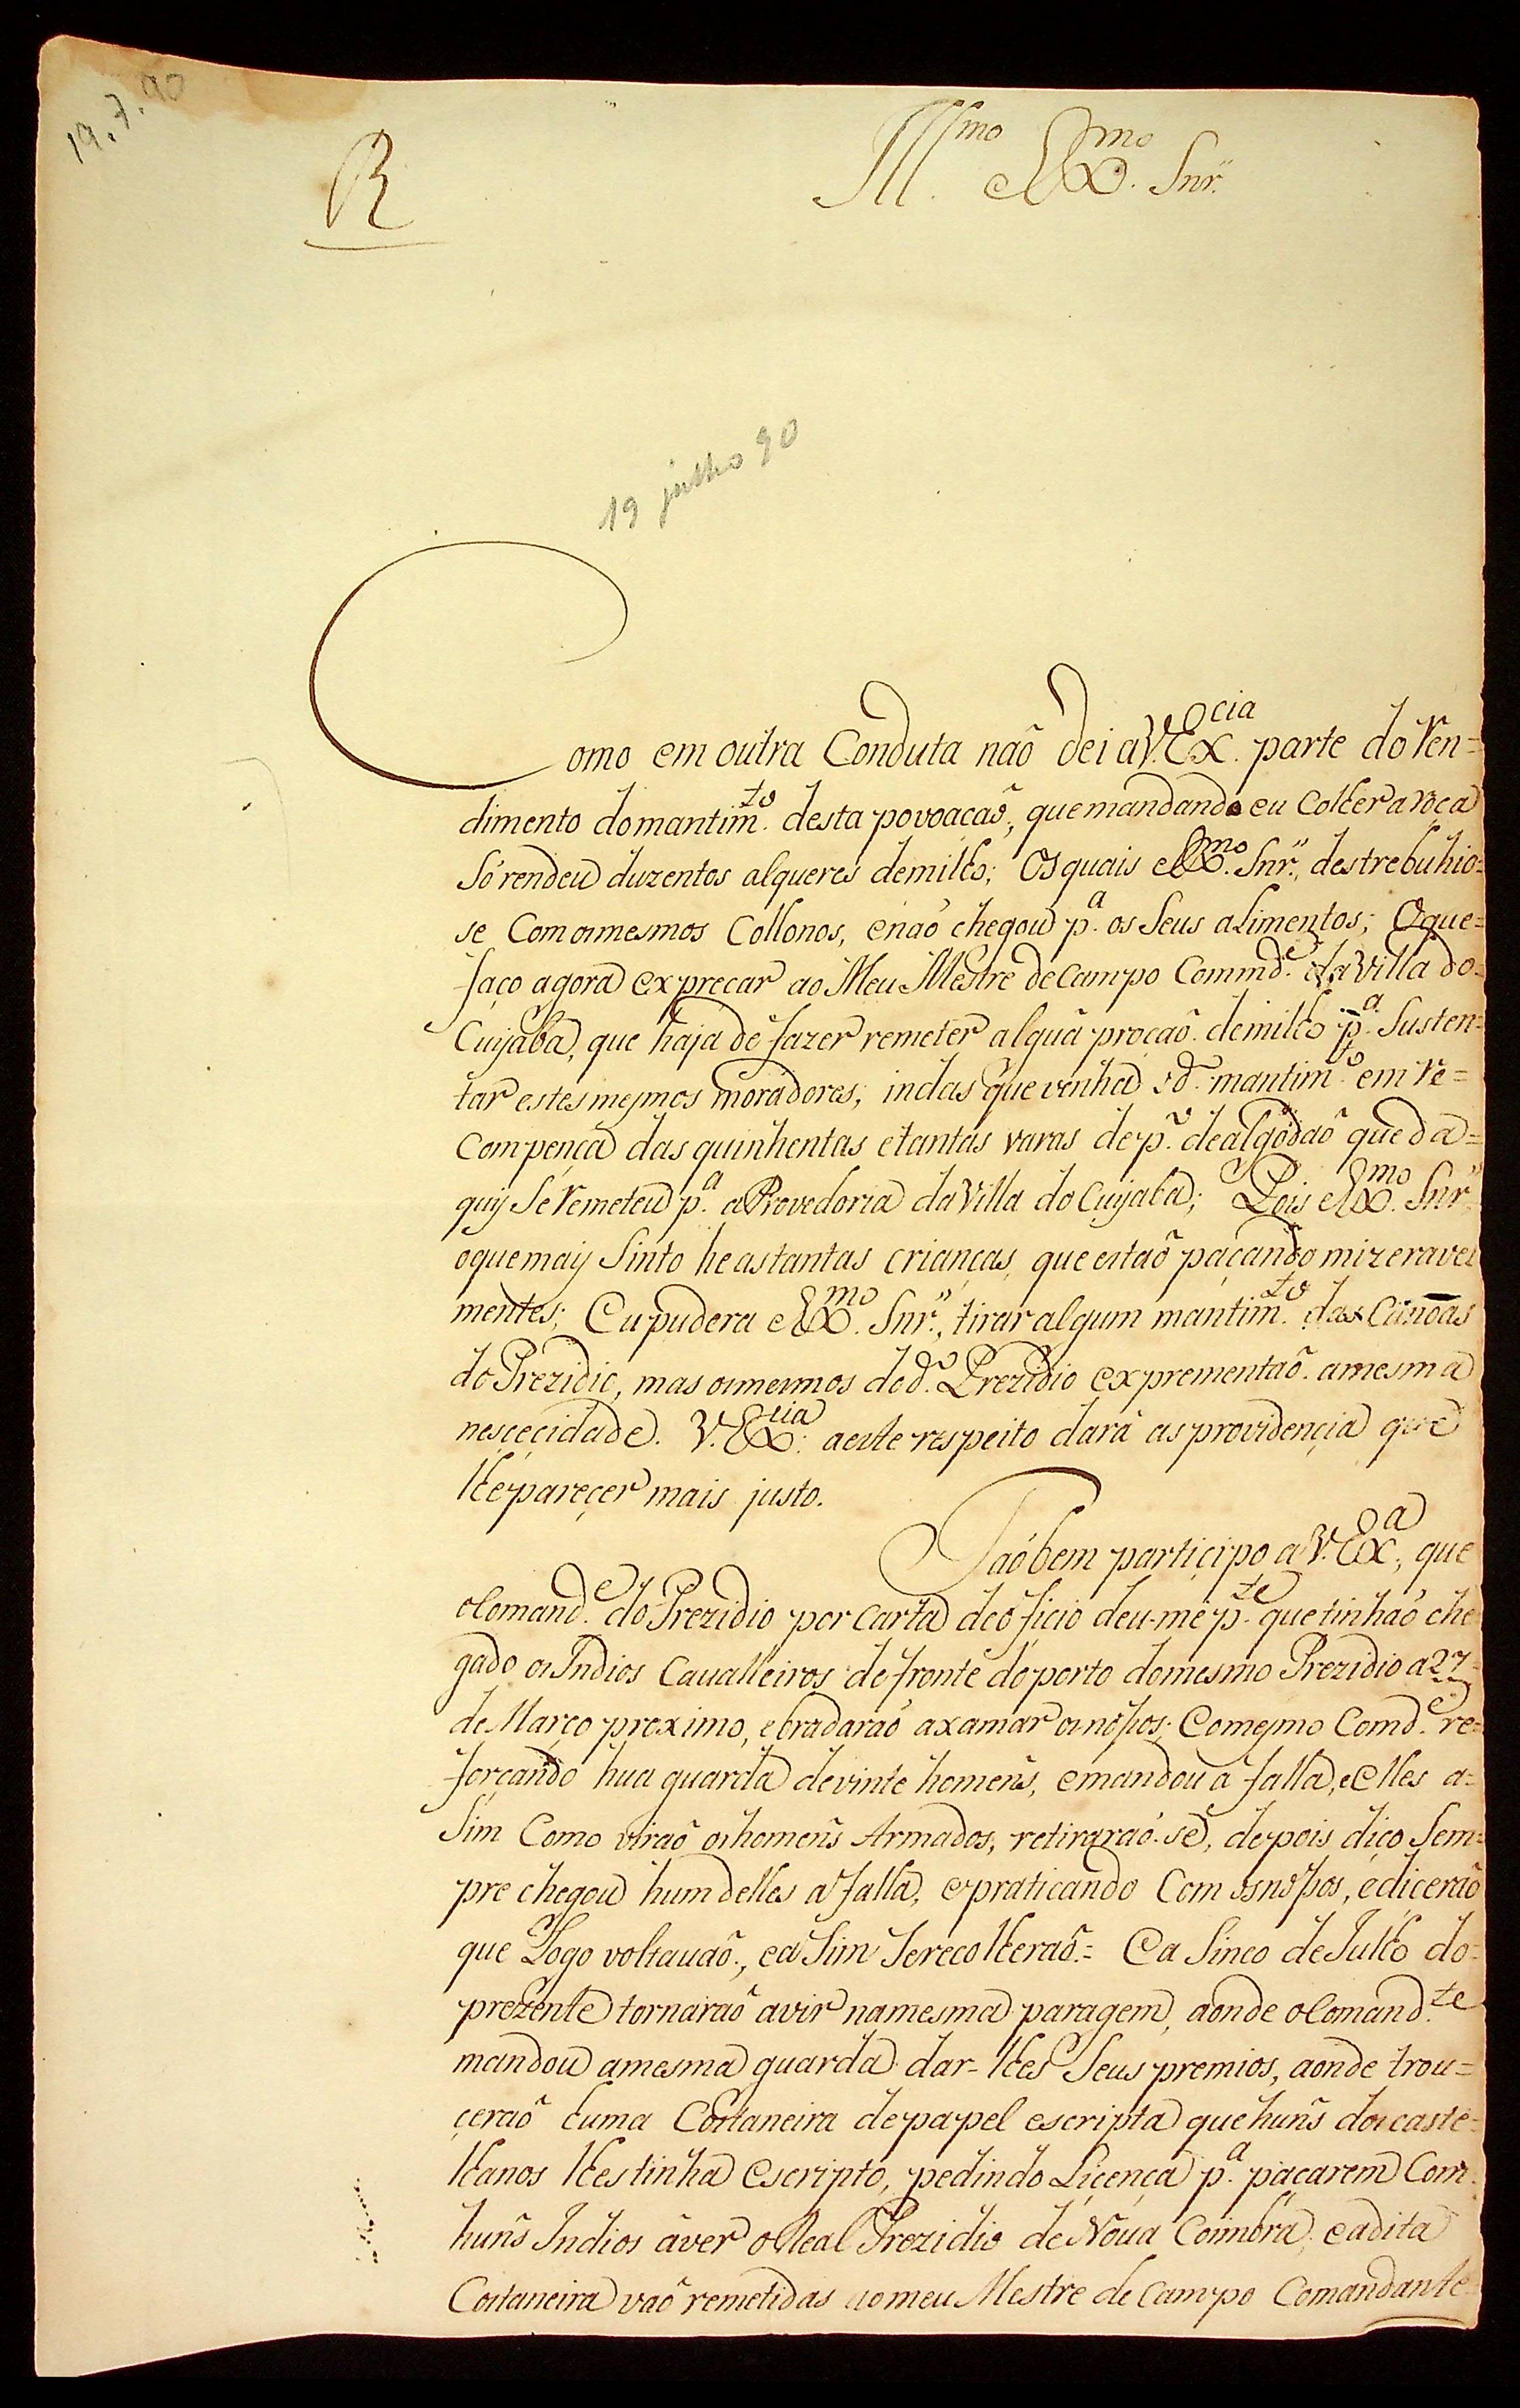 19.7.90
R
Ill.mo eEx.mo Snr.
19 julho 90
Como em outra Conduta naõ dei a V.Ex.cia parte do Ren=
dimento domantim.to desta povoacaõ, quemandando eu Colher aroca
Só rendeu duzentos alqueres demilho; Os quais eEx.mo Snr., destrebuhio=
se Com os mesmos Collonos, enaõ chegou p.a os Seus alimentos; Oque=
faço agora expreçar ao Meu Mestre de Campo Commd.e da Villa do=
Cuyaba, que haja de fazer remeter alguã proçaõ demilho p.a Susten=
tar estes mesmos moradores; indas que venha o d.o mantim.to em re=
compença das quinhentas etantas varas dep.o dealgodaõ que da=
quij Se remeteu p.a aProvedoria da Villa do Cuyaba; Pois eEx.mo Snr.
oquemaij Sinto he astantas crianças, que estaõ paçando mizeravel
mentes; Eu pudera eEx.mo Snr., tirar algum mantim.to das Canoas
do Prezidio, mas os mesmos do d.o Prezidio exprementaõ amesma
nesçecidade. V.Ex.cia aeste respeito dará as providençia que
lhe pareçer mais justo.
Taõbem partiçipo a V.Ex.a, que
oComand.e do Prezidio por Carta deoficio deu-me p.te que tinhaõ che
gado os Indios Cavalleiros defronte do porto domesmo Prezidio a 27=
de Março proximo, ebradaraõ axamar os noſsos; Eomesmo Comd.e re=
forçando hua guarda devinte homeñs, emandou á falla, eElles a=
Sim Como viraõ os homeñs Armados, retiraraõ-se, depois diço Sem=
pre chegou hum delles a falla, epraticando Com os noſsos, ediceraõ
que Logo voltavaõ, ea Sim Serecolheraõ.= Ea Sinco de Julho do=
prezente tornaraõ avir namesma paragem, aonde oComand.te
mandou amesma guarda dar-lhes Seus premios, aonde trou=
çeraõ huma Costaneira de papel escripta que huñs dos caste=
lhanos lhes tinha Escripto, pedindo Liçença p.a paçarem Com
huñs Indios áver oReal Prezidio de Nova Coimbra; eadita
Costaneira vaõ remetidas aomeu Mestre de Campo Comandante